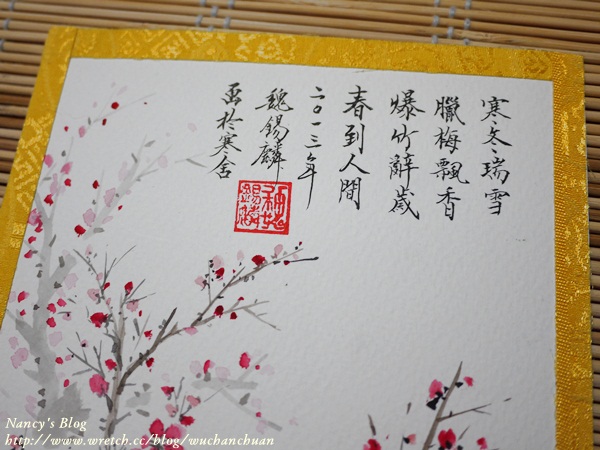 寒冬瑞雪
臘梅飄香
爆竹辭歲
春到人間
二〇一三年
魏錫麟
畫於寒舍
Nancy's Blog
http://www.wretch.cc/blog/wuchanchuan